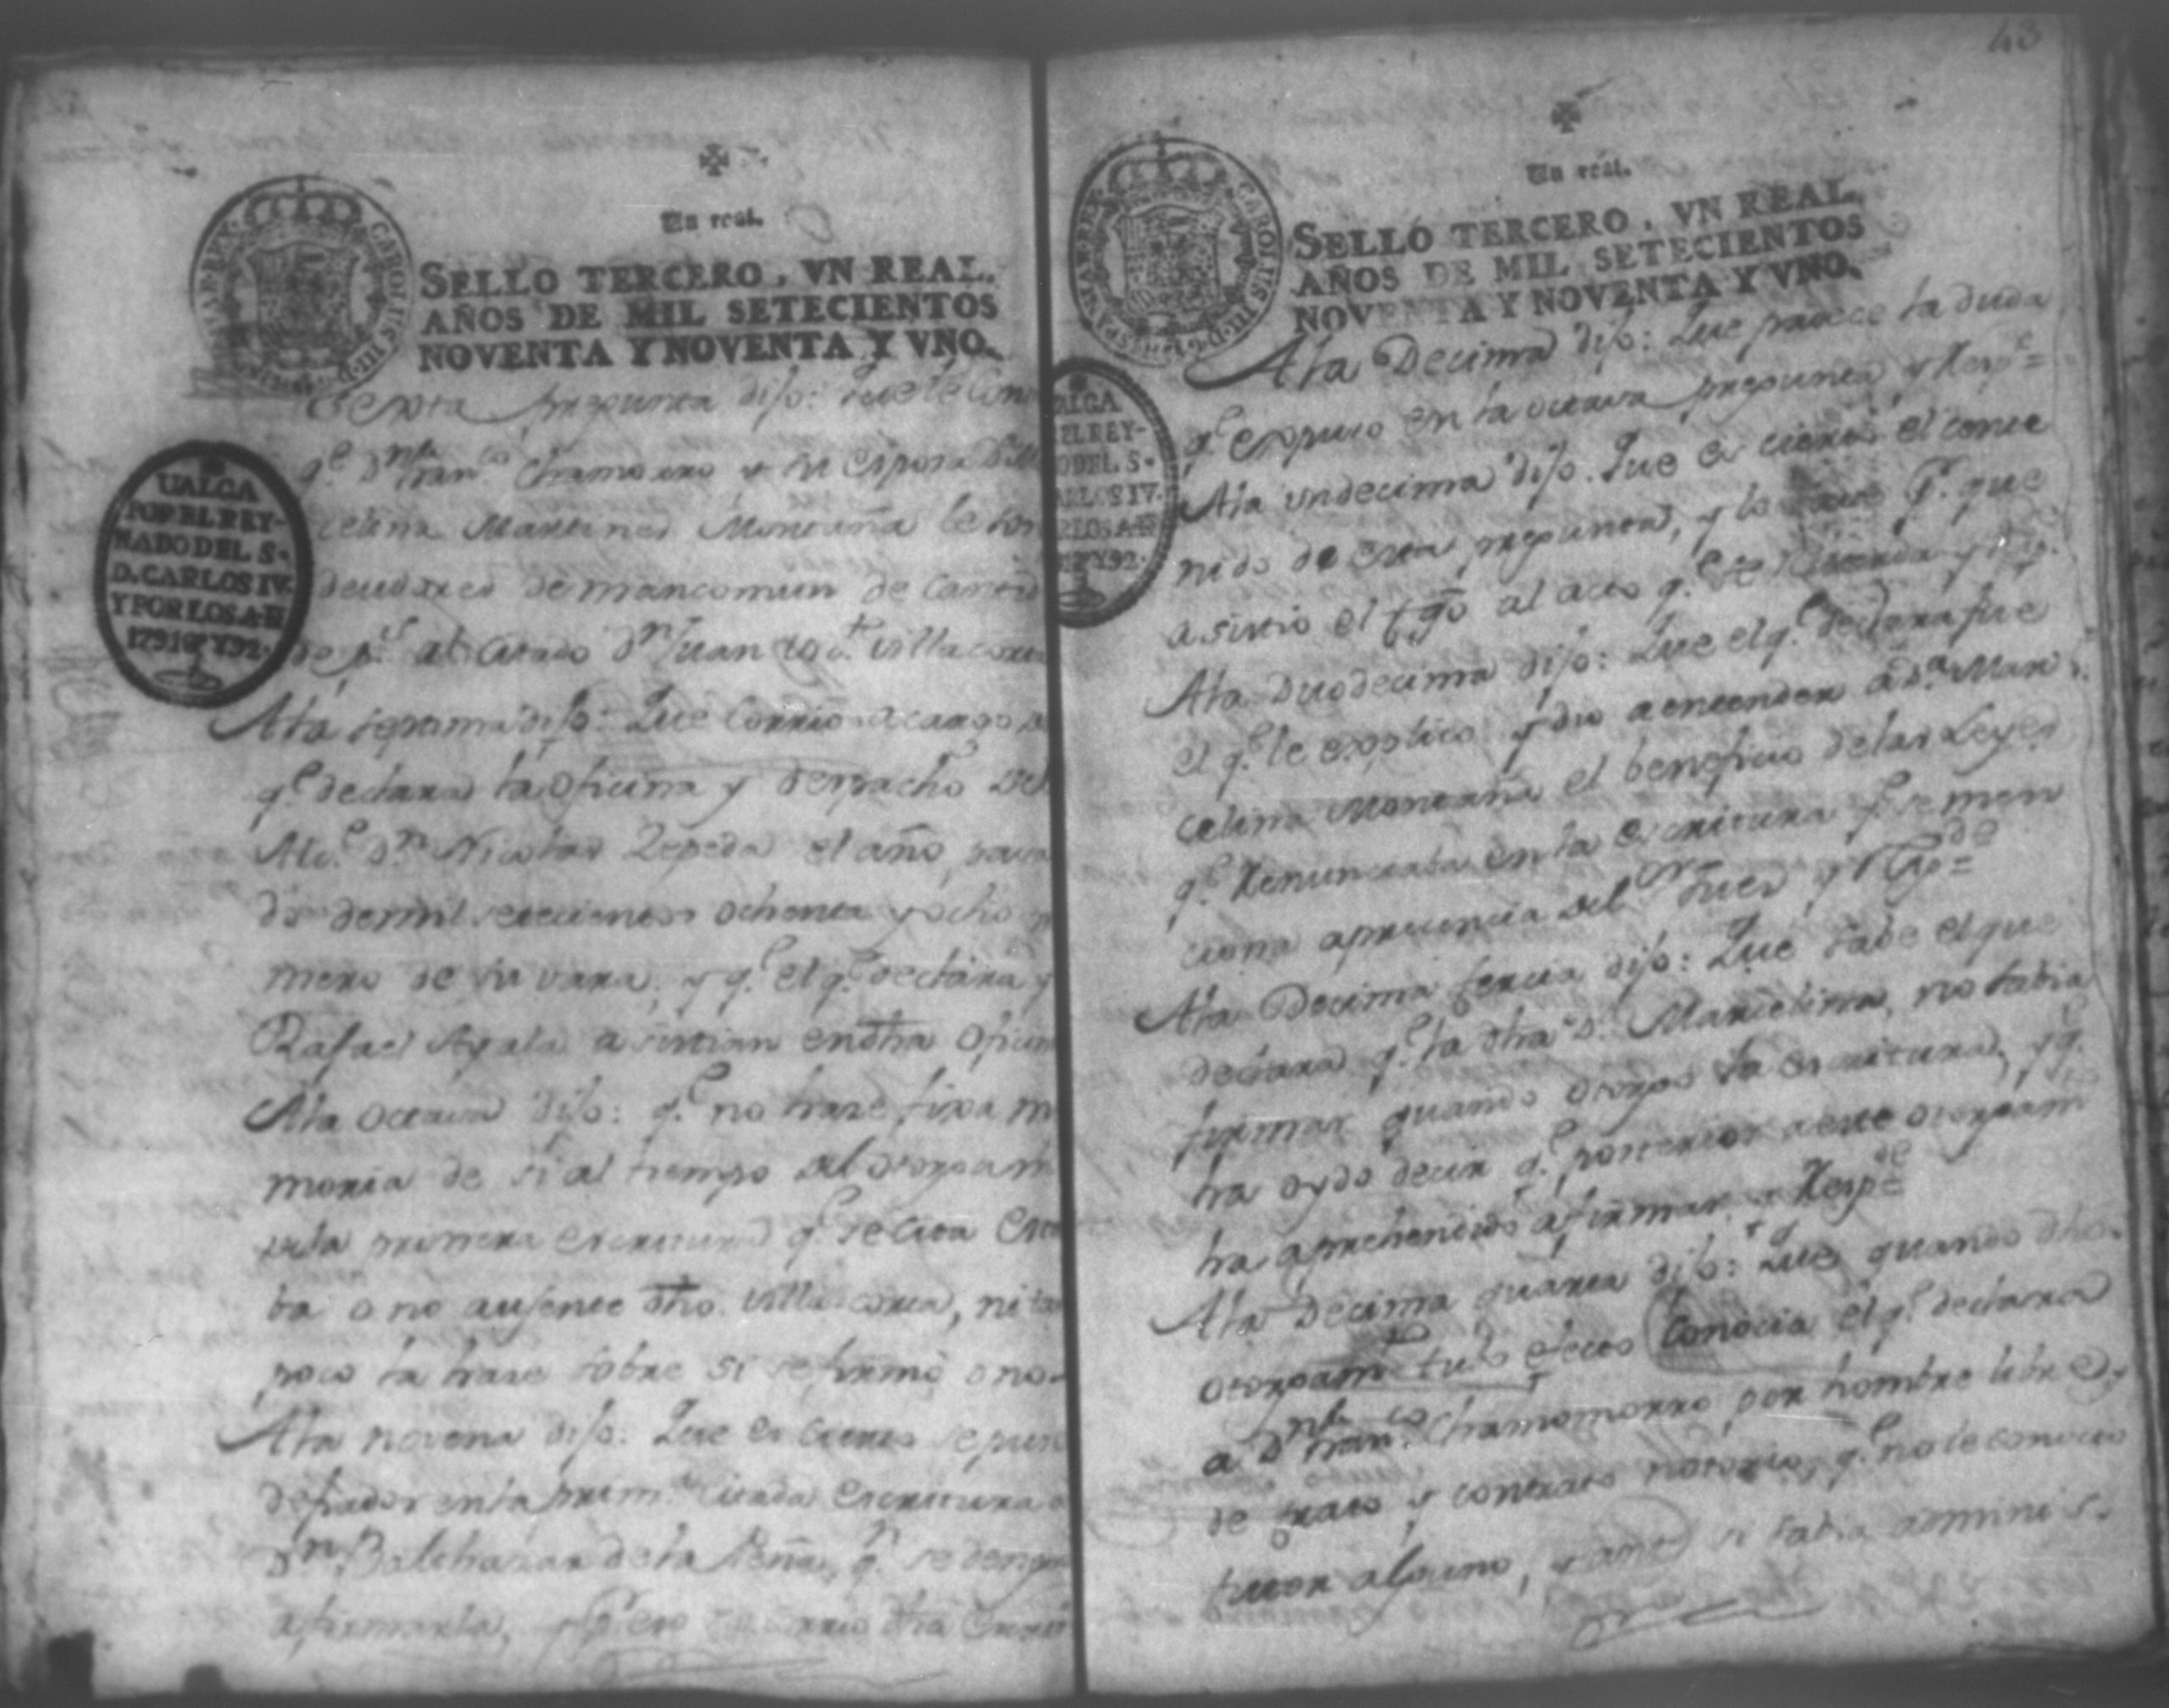 Un real.
SELLO TERCERO, VN REAL.
AÑOS DE MIL SETECIENTOS
NOVENTA Y NOVENTA Y VNO.
CAROLUS III
VALGA
POR EL REY-
NADO DEL S.
D. CARLOS IV.
Y POR LOS A. D
1791 Y 92.
Sexta pregunta dijo: Que le
q.e Dn Franco. Chamorro y su esposa
celina Martines Montaña le
deudores de mancomun de
de p.s al citado Dn Juan Villacorta
Ala septima dijo: Que corrio a cargo
q.e declara la oficina y despacho del
Alc.e Dn Nicolas Zepeda el año pasa
do de mil setecientos ochenta y ocho
mero de su vara; y q.e el q.e declara y
Rafael Ayala asistian en dha ofici
Ala octava dijo: q.e no trae fixa me
moria de si al tiempo del otorgam
dela primera escritura q.e se cita esta
ba o no ausente dho. Villacorta, ni tan
poco la trae sobre si se firmó o no.
Ala novena dijo: Que es cierto se pu
de fiador en la prim.a citada escritura
Dn Balthazar de la Peña, q.e se denego
a firmarla, dha
43
Un real.
SELLO TERCERO, VN REAL.
AÑOS DE MIL SETECIENTOS
NOVENTA Y NOVENTA Y VNO.
CAROLUS III D. G. HISPANIAR. REX
ALGA
EL REY-
O DEL S.
ARLOS IV.
RLOS A. D
Y 92.
Ala Decima dijo: Que padece la duda
q.e expuso en la octava pregunta y Resp.e
Ala undecima dijo. Que es cierto el conte
nido de esta pregunta, y lo save P.r que
asistio el tgo al acto q.e se y
Ala Duodecima dijo: Que el q.e declara fue
el q.e le explico y dio a entender a D.a Mar
celina Montaña el beneficio de las Leyes
q.e Renunciaba en la escritura q.e se men
ciona a presencia del Juez y Resp.de
Ala Decima tercia dijo: Que sabe el que
declara q.e la dha D.a Marcelina, no sabia
firmar quando otorgó la escritura, y q.e
ha oydo decir q.e posterior a este otorgam
ha aprehendido a firmar. y Resp.de
Ala Decima quarta dijo: Que quando dho.
otorgam.to tubo efecto conocia el q.e declara
a Dn Franco. Chamomorro por hombre libre,
de trato y contrato notorio, q.e no le conocio
tutor alguno, y antes si sabia adminis-